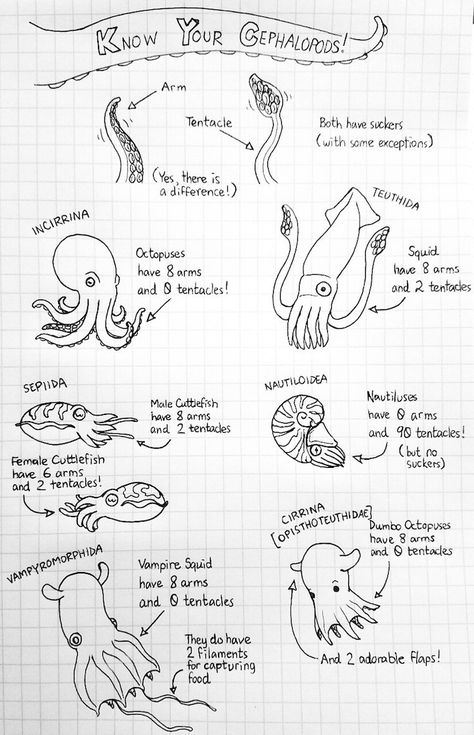 Know Your Cephalopods!
Arm
Tentacle
Both have suckers
(with some exceptions)
(Yes, there is
a difference!)
INCIRRINA
Octopuses
have 8 arms
and 0 tentacles!
TEUTHIDA
Squid
have 8 arms
and 2 tentacles
SEPIIDA
Male Cuttlefish
have 8 arms
and 2 tentacles
Female Cuttlefish
have 6 arms
and 2 tentacles!
NAUTILOIDEA
Nautiluses
have 0 arms
and 90 tentacles!
(but no
suckers)
CIRRINA
[OPISTHOTEUTHIDAE]
Dumbo Octopuses
have 8 arms
and 0 tentacles
And 2 adorable flaps!
VAMPYROMORPHIDA
Vampire Squid
have 8 arms
and 0 tentacles
They do have
2 filaments
for capturing
food